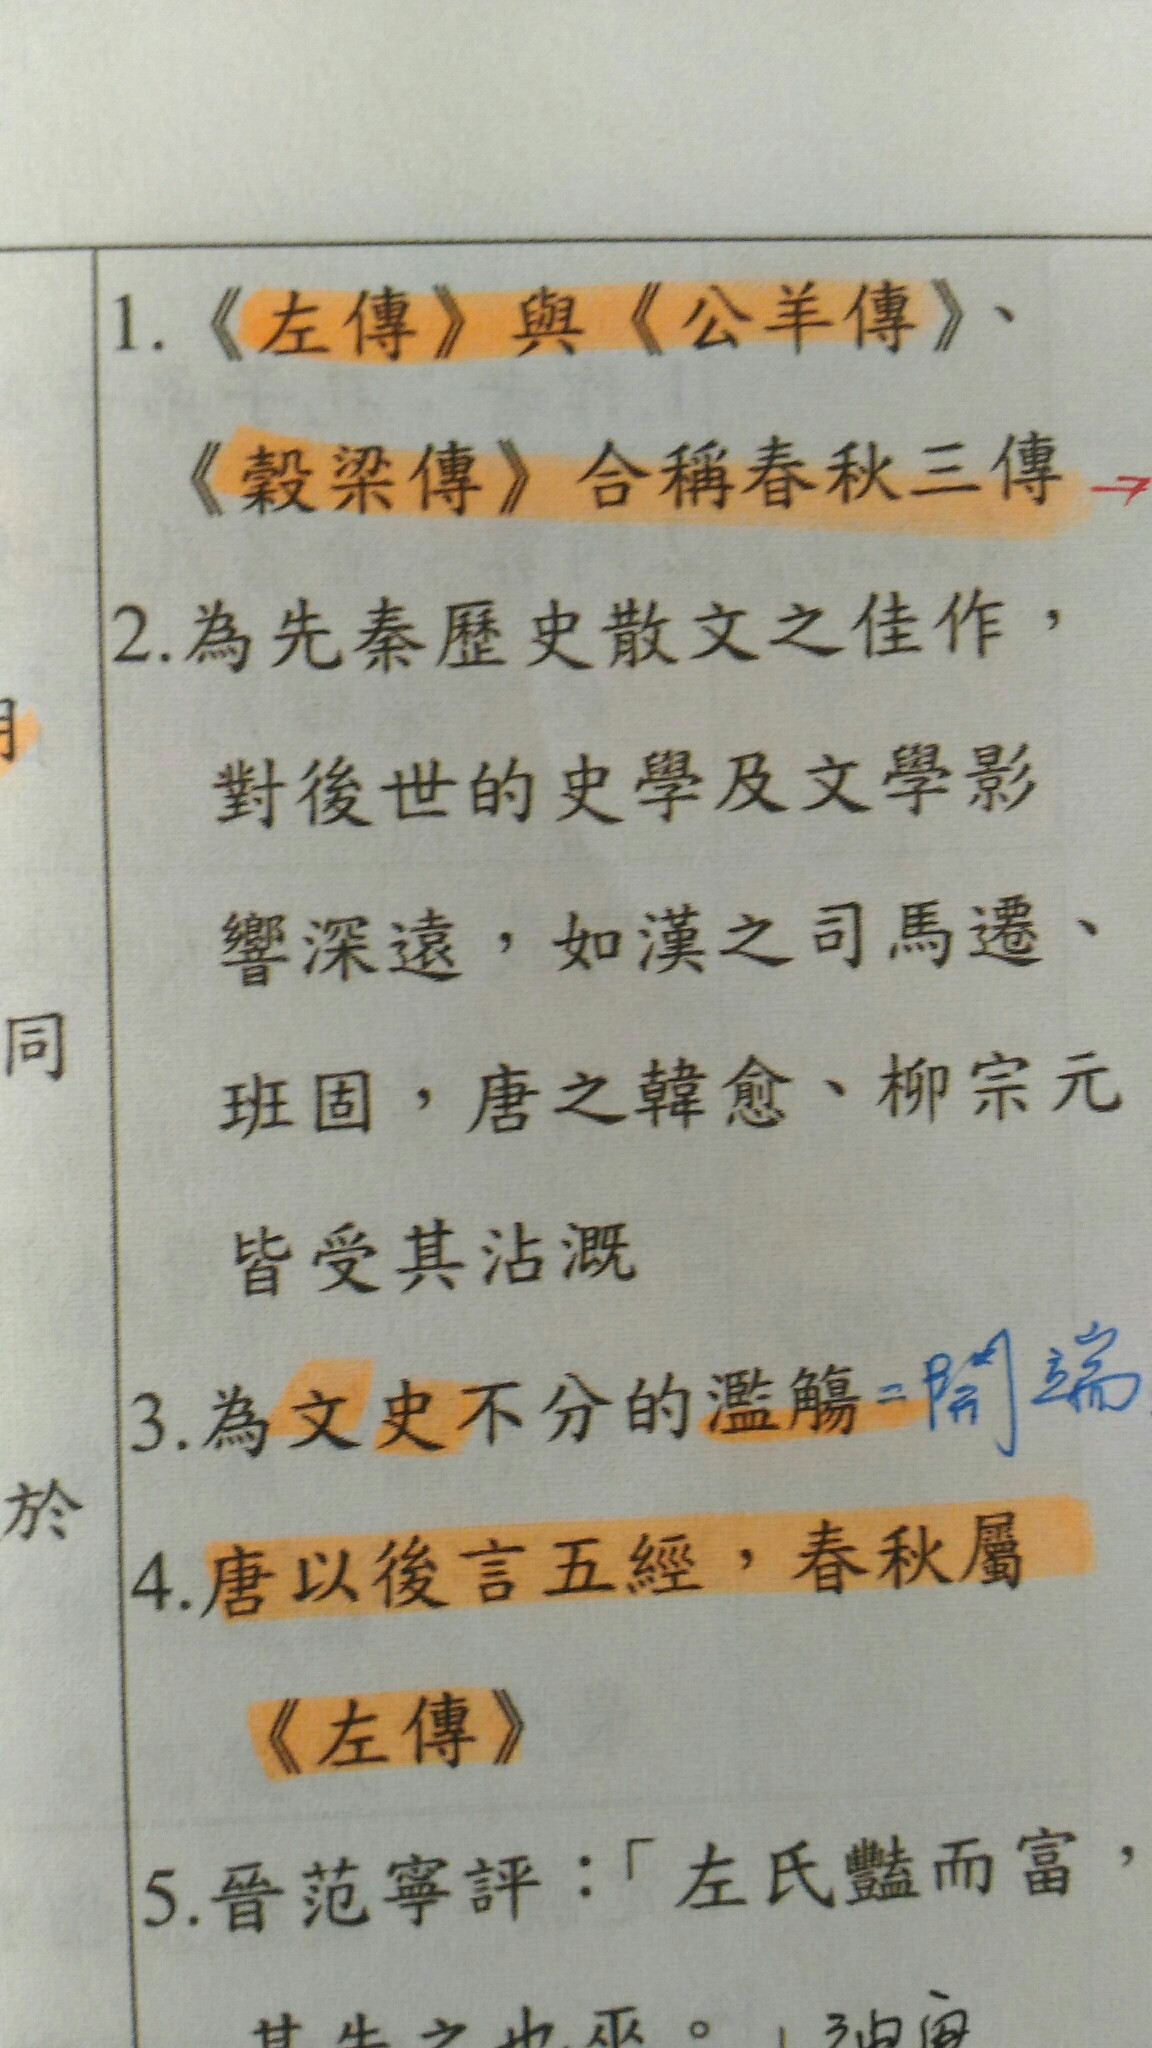 1.《左傳》與《公羊傳》、
《穀梁傳》合稱春秋三傳 →
2.為先秦歷史散文之佳作，
對後世的史學及文學影
響深遠，如漢之司馬遷、
班固，唐之韓愈、柳宗元
同
皆受其沾溉
3.為文史不分的濫觴=開端
於
4.唐以後言五經，春秋屬
《左傳》
5.晉范寧評：「左氏豔而富，
其失之也巫。」